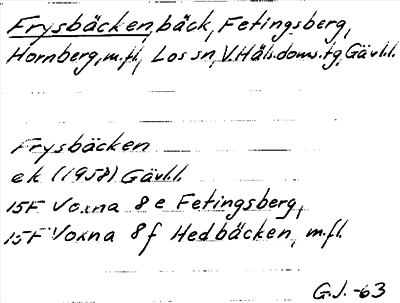 Frysbäcken, bäck, Fetingsberg,
Hornberg, m.fl., Los sn, V. Häls.doms.tg, Gävl.l.
Frysbäcken
ek (1958) Gävl.l.
15F Voxna 8 e Fetingsberg,
15F Voxna 8 f Hedbäcken, m.fl.
G.J. -63